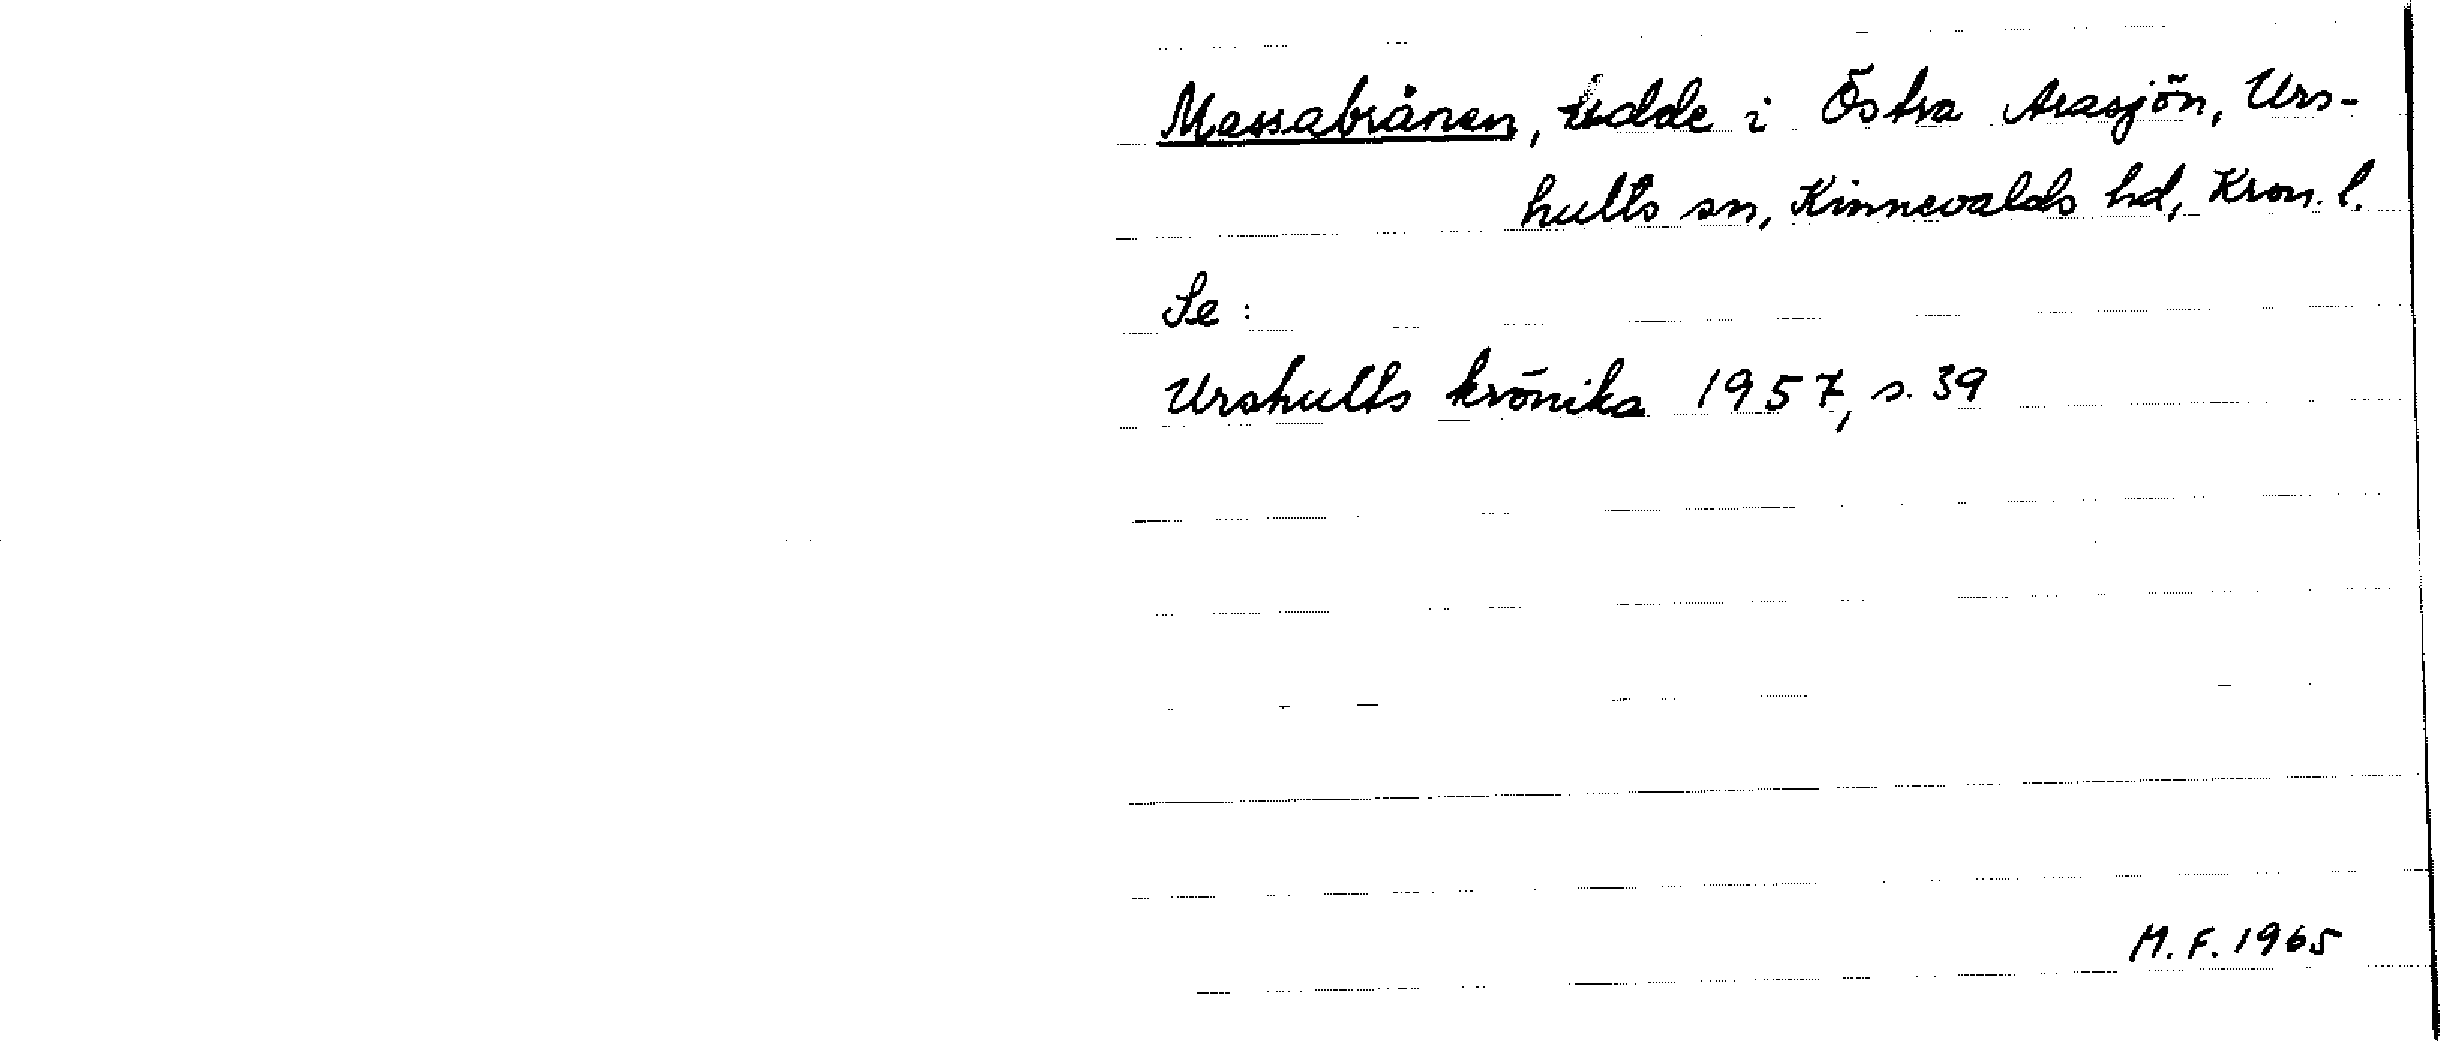 Massabrånen, udde i Östra Arasjön, Urs-
hults sn, Kinnevalds hd, Kron. l.
Se:
Urshults krönika 1957, s. 39
M.F. 1965